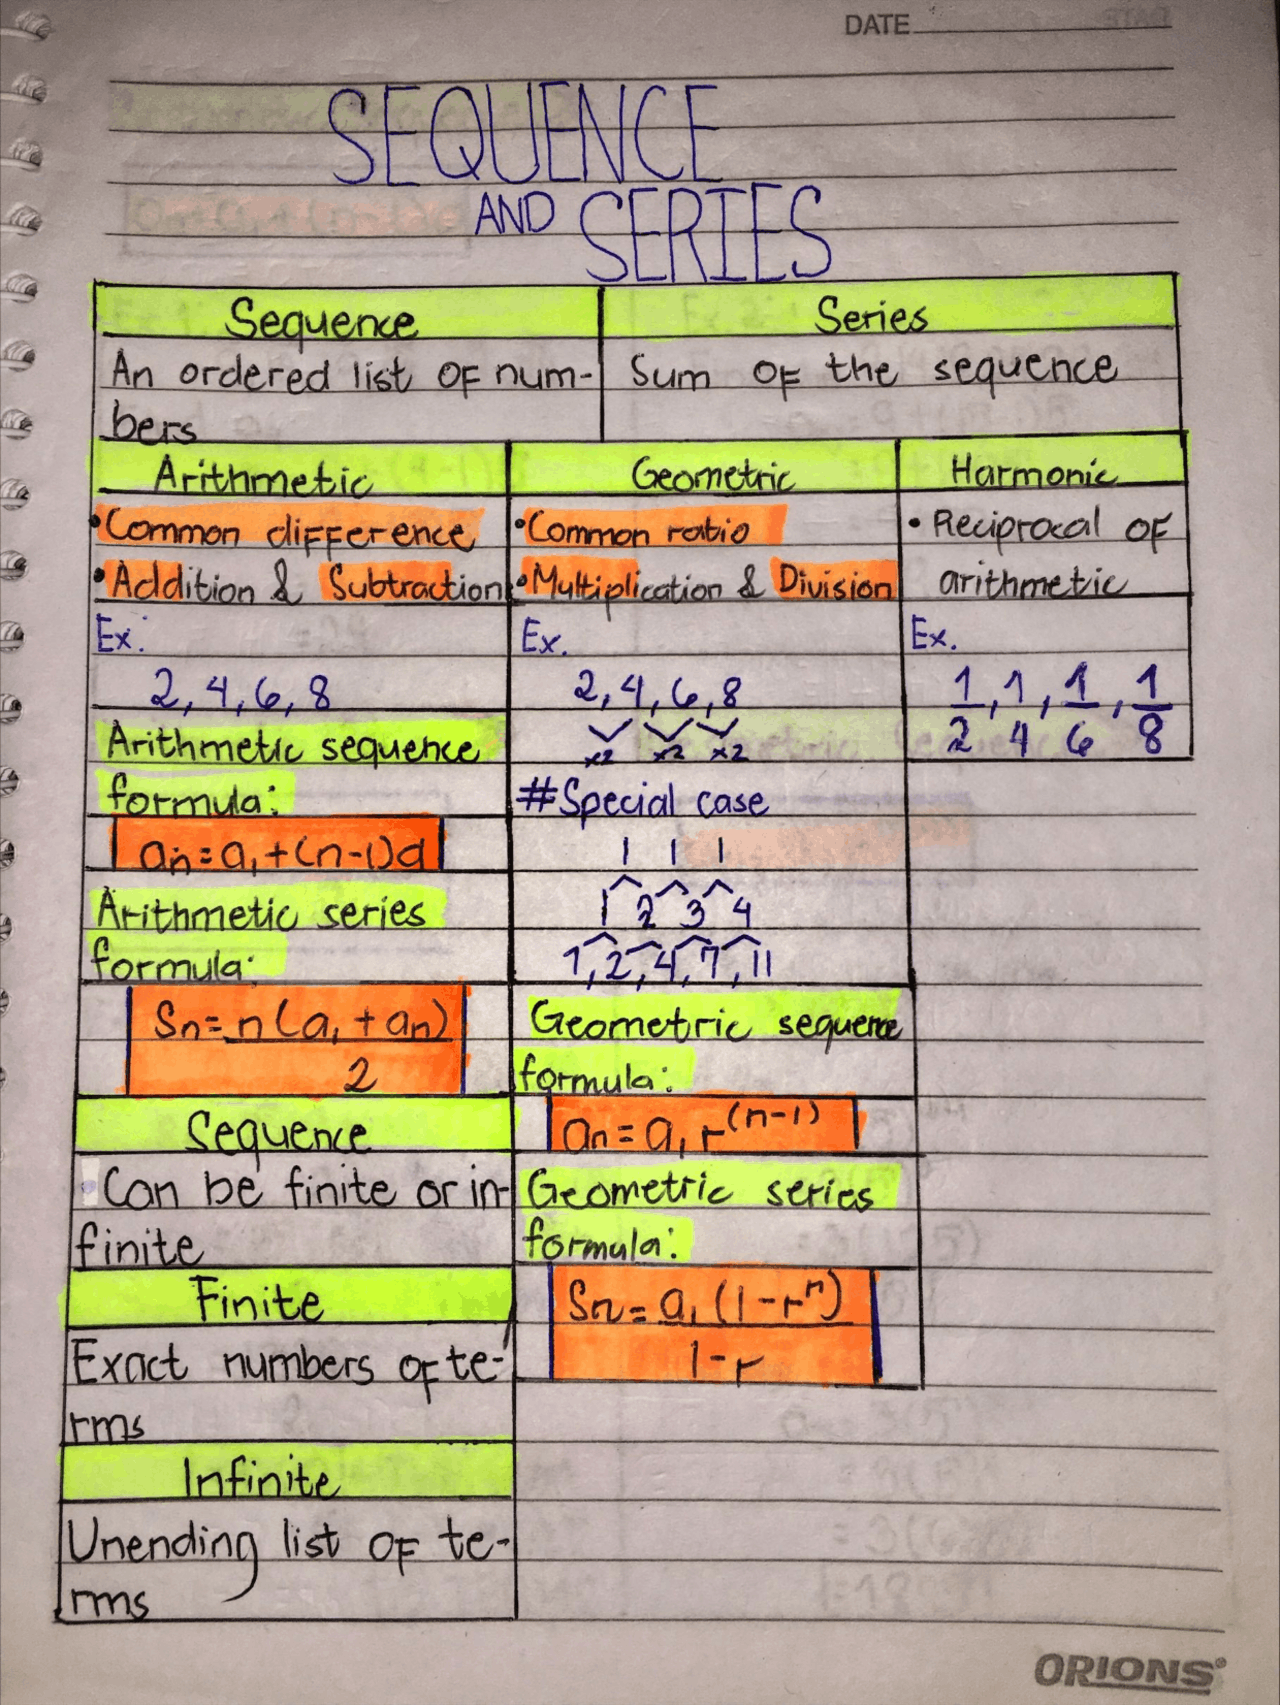 DATE
SEQUENCE
AND SERIES
Sequence
An ordered list OF num-
bers
Series
Sum OF the sequence
Arithmetic
•Common difference
•Addition & Subtraction
Ex:
2, 4, 6, 8
Arithmetic sequence
formula:
an = a₁ + (n-1)d
Arithmetic series
formula:
Sn = n(a₁ + an)
2
Geometric
•Common ratio
•Multiplication & Division
Ex.
2, 4, 6, 8
×2 ×2 ×2
#Special case
1 1 1
1 2 3 4
1, 2, 4, 7, 11
Geometric sequence
formula:
an = a₁ r⁽ⁿ⁻¹⁾
Geometric series
formula:
Sn = a₁ (1-rⁿ)
1-r
Harmonic
• Reciprocal OF
arithmetic
Ex.
1, 1, 1, 1
2 4 6 8
Sequence
Can be finite or in-
finite
Finite
Exact numbers of te-
rms
Infinite
Unending list OF te-
rms
ORIONS